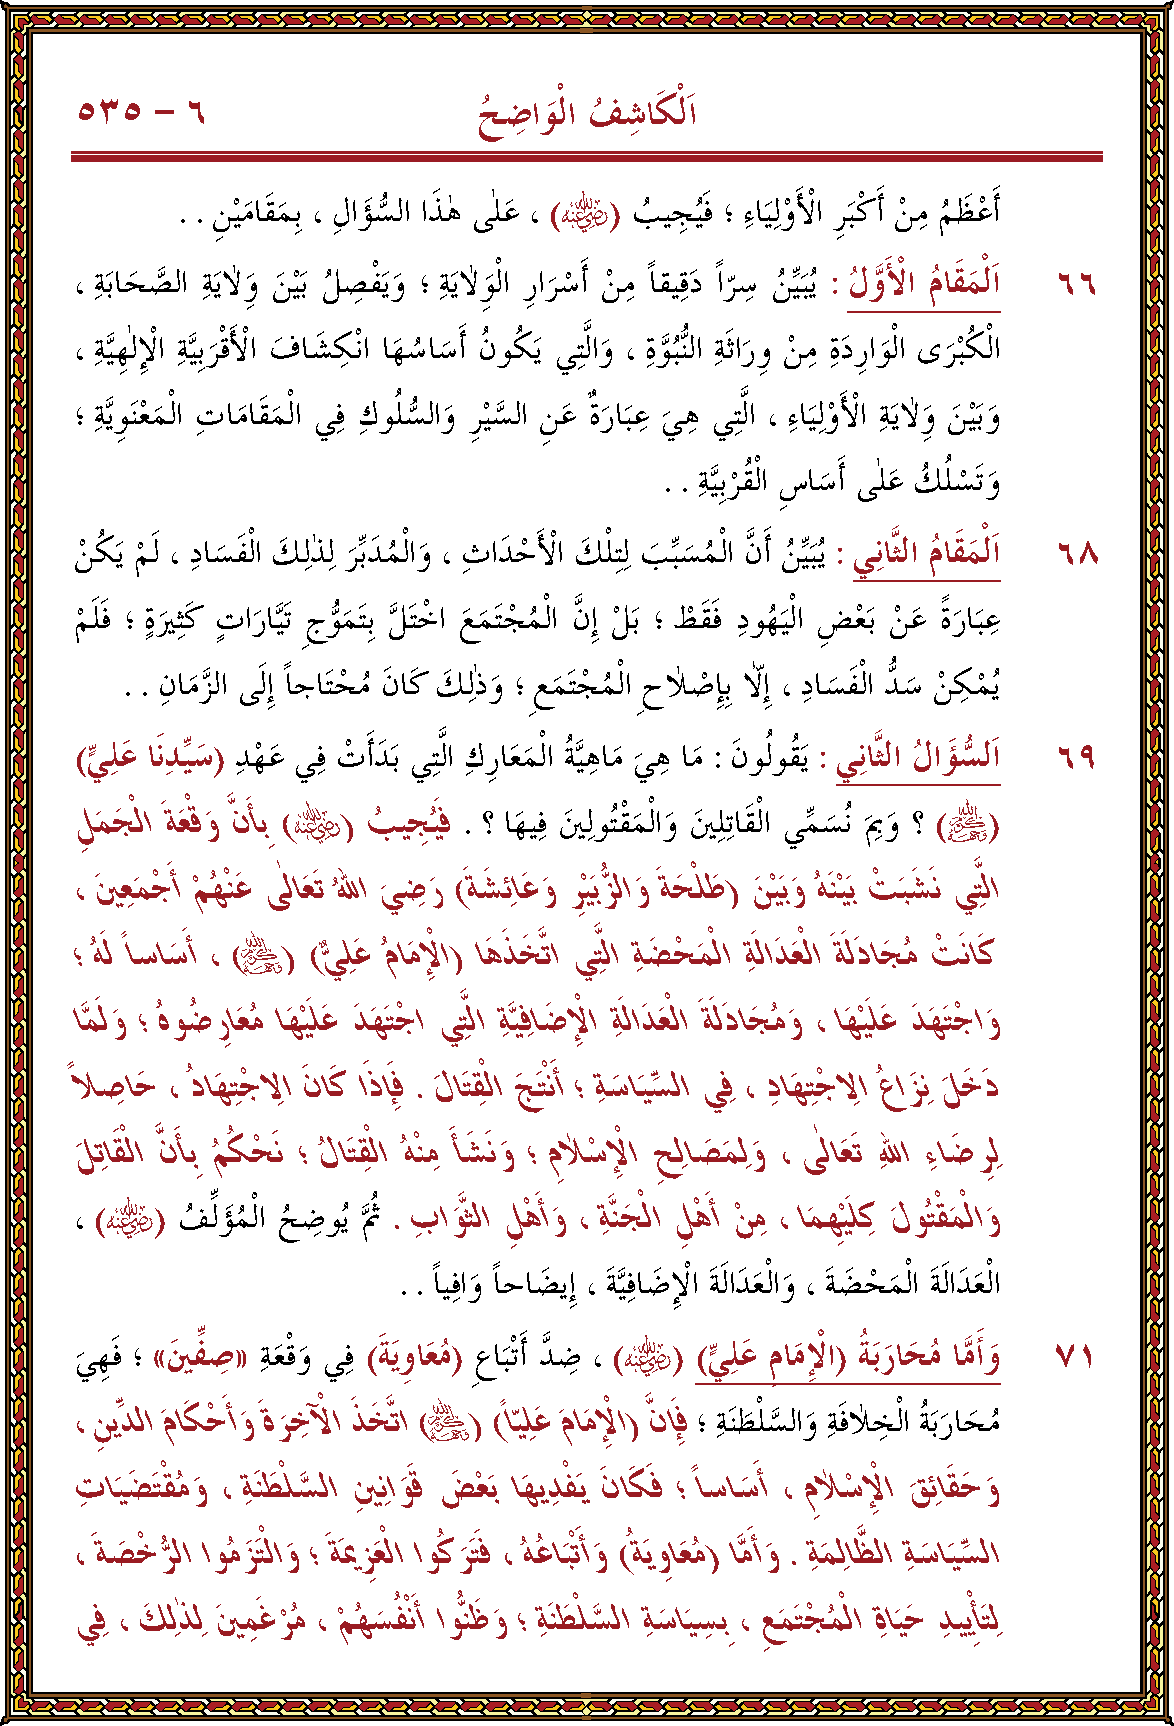 اَلْكَاشِفُ الْوَاضِحُ ٦ - ٥٣٥
أَعْظَمُ مِنْ أَكْبَرِ الْأَوْلِيَاءِ ؛ فَيُجِيبُ (رضي الله عنه) ، عَلَى هٰذَا السُّؤَالِ ، بِمَقَامَيْنِ . .
٦٦ اَلْمَقَامُ الْأَوَّلُ : يُبَيِّنُ سِرّاً دَقِيقاً مِنْ أَسْرَارِ الْوَلَايَةِ ؛ وَيَفْصِلُ بَيْنَ وِلَايَةِ الصَّحَابَةِ ،
الْكُبْرَى الْوَارِدَةِ مِنْ وِرَاثَةِ النُّبُوَّةِ ، وَالَّتِي يَكُونُ أَسَاسُهَا انْكِشَافَ الْأَقْرَبِيَّةِ الْإِلٰهِيَّةِ ،
وَبَيْنَ وِلَايَةِ الْأَوْلِيَاءِ ، الَّتِي هِيَ عِبَارَةٌ عَنِ السَّيْرِ وَالسُّلُوكِ فِي الْمَقَامَاتِ الْمَعْنَوِيَّةِ ؛
وَتَسْلُكُ عَلَى أَسَاسِ الْقُرْبِيَّةِ . .
٦٨ اَلْمَقَامُ الثَّانِي : يُبَيِّنُ أَنَّ الْمُسَبِّبَ لِتِلْكَ الْأَحْدَاثِ ، وَالْمُدَبِّرَ لِذٰلِكَ الْفَسَادِ ، لَمْ يَكُنْ
عِبَارَةً عَنْ بَعْضِ الْيَهُودِ فَقَطْ ؛ بَلْ إِنَّ الْمُجْتَمَعَ اخْتَلَّ بِتَمَوُّجِ تَيَّارَاتٍ كَثِيرَةٍ ؛ فَلَمْ
يُمْكِنْ سَدُّ الْفَسَادِ ، إِلَّا بِإِصْلَاحِ الْمُجْتَمَعِ ؛ وَذٰلِكَ كَانَ مُحْتَاجاً إِلَى الزَّمَانِ . .
٦٩ اَلسُّؤَالُ الثَّانِي : يَقُولُونَ : مَا هِيَ مَاهِيَّةُ الْمَعَارِكِ الَّتِي بَدَأَتْ فِي عَهْدِ (سَيِّدِنَا عَلِيٍّ)
(كرم الله وجهه) ؟ وَبِمَ نُسَمِّي الْقَاتِلِينَ وَالْمَقْتُولِينَ فِيهَا ؟ . فَيُجِيبُ (رضي الله عنه) بِأَنَّ وَقْعَةَ الْجَمَلِ
الَّتِي نَشَبَتْ بَيْنَهُ وَبَيْنَ (طَلْحَةَ وَالزُّبَيْرِ وَعَائِشَةَ) رَضِيَ اللهُ تَعَالٰى عَنْهُمْ أَجْمَعِينَ ،
كَانَتْ مُجَادَلَةَ الْعَدَالَةِ الْمَحْضَةِ الَّتِي اتَّخَذَهَا (الْإِمَامُ عَلِيٌّ) (كرم الله وجهه) ، أَسَاساً لَهُ ؛
وَاجْتَهَدَ عَلَيْهَا ، وَمُجَادَلَةَ الْعَدَالَةِ الْإِضَافِيَّةِ الَّتِي اجْتَهَدَ عَلَيْهَا مُعَارِضُوهُ ؛ وَلَمَّا
دَخَلَ نِزَاعُ الِاجْتِهَادِ ، فِي السِّيَاسَةِ ؛ أَنْتَجَ الْقِتَالَ . فَإِذَا كَانَ الِاجْتِهَادُ ، حَاصِلاً
لِرِضَاءِ اللهِ تَعَالٰى ، وَلِمَصَالِحِ الْإِسْلَامِ ؛ وَنَشَأَ مِنْهُ الْقِتَالُ ؛ نَحْكُمُ بِأَنَّ الْقَاتِلَ
وَالْمَقْتُولَ كِلَيْهِمَا ، مِنْ أَهْلِ الْجَنَّةِ ، وَأَهْلِ الثَّوَابِ . ثُمَّ يُوضِحُ الْمُؤَلِّفُ (رضي الله عنه) ،
الْعَدَالَةَ الْمَحْضَةَ ، وَالْعَدَالَةَ الْإِضَافِيَّةَ ، إِيضَاحاً وَافِياً . .
٧١ وَأَمَّا مُحَارَبَةُ (الْإِمَامِ عَلِيٍّ) (رضي الله عنه) ، ضِدَّ أَتْبَاعِ (مُعَاوِيَةَ) فِي وَقْعَةِ «صِفِّينَ» ؛ فَهِيَ
مُحَارَبَةُ الْخِلَافَةِ وَالسَّلْطَنَةِ ؛ فَإِنَّ (الْإِمَامَ عَلِيّاً) (كرم الله وجهه) اتَّخَذَ الْآخِرَةَ وَأَحْكَامَ الدِّينِ ،
وَحَقَائِقَ الْإِسْلَامِ ، أَسَاساً ؛ فَكَانَ يَفْدِيهَا بَعْضَ قَوَانِينِ السَّلْطَنَةِ ، وَمُقْتَضَيَاتِ
السِّيَاسَةِ الظَّالِمَةِ . وَأَمَّا (مُعَاوِيَةُ) وَأَتْبَاعُهُ ، فَتَرَكُوا الْعَزِيمَةَ ؛ وَالْتَزَمُوا الرُّخْصَةَ ،
لِتَأْيِيدِ حَيَاةِ الْمُجْتَمَعِ ، بِسِيَاسَةِ السَّلْطَنَةِ ؛ وَظَنُّوا أَنْفُسَهُمْ ، مُرْغَمِينَ لِذٰلِكَ ، فِي